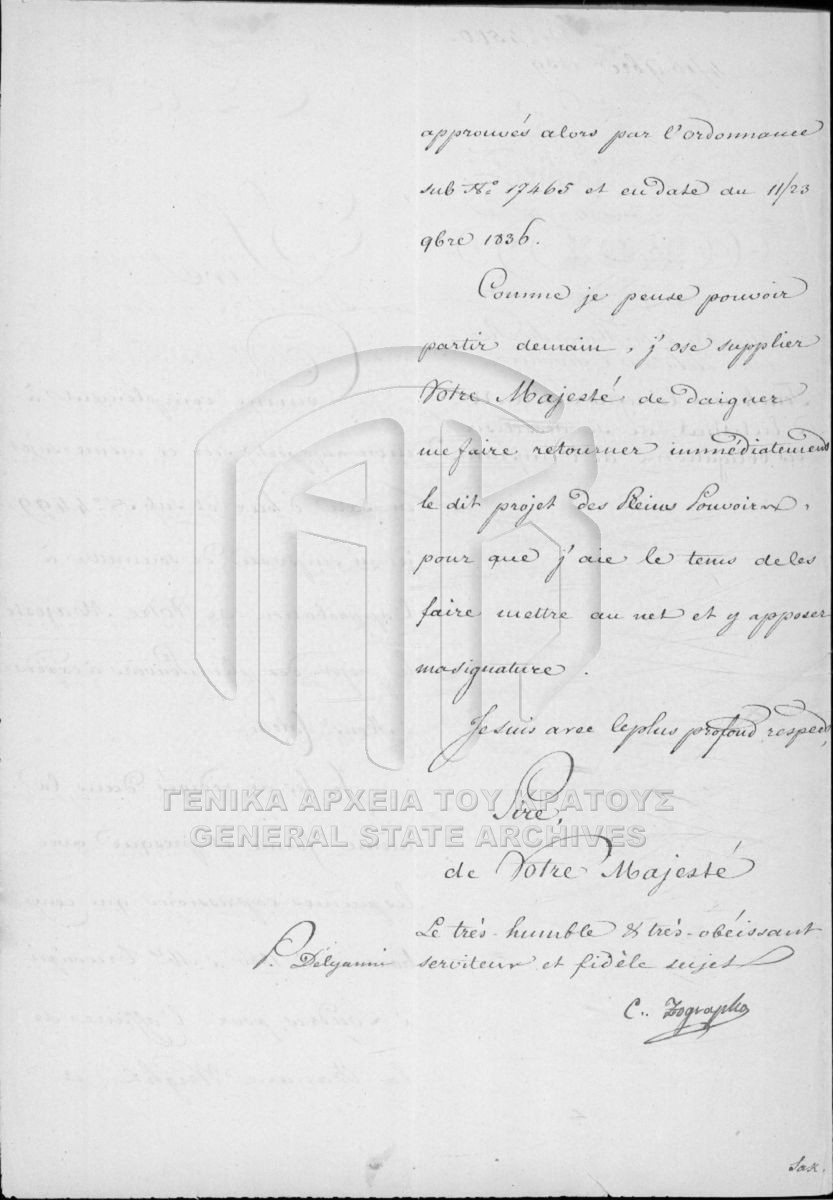 approuvés alors par l'ordonnance
sub N° 17465 et en date du 11/23
9bre 1836.
Comme je pense pouvoir
partir demain, j'ose supplier
Votre Majesté de daigner
me faire retourner immédiatement
le dit projet des Pleins Pouvoirs,
pour que j'aie le tems de les
faire mettre au net et y apposer
ma signature.
Je suis avec le plus profond respect,
Sire,
de Votre Majesté
Le très-humble & très-obéissant
serviteur et fidèle sujet
P. Délyanni
C. Zographo
ΓΕΝΙΚΑ ΑΡΧΕΙΑ ΤΟΥ ΚΡΑΤΟΥΣ
GENERAL STATE ARCHIVES